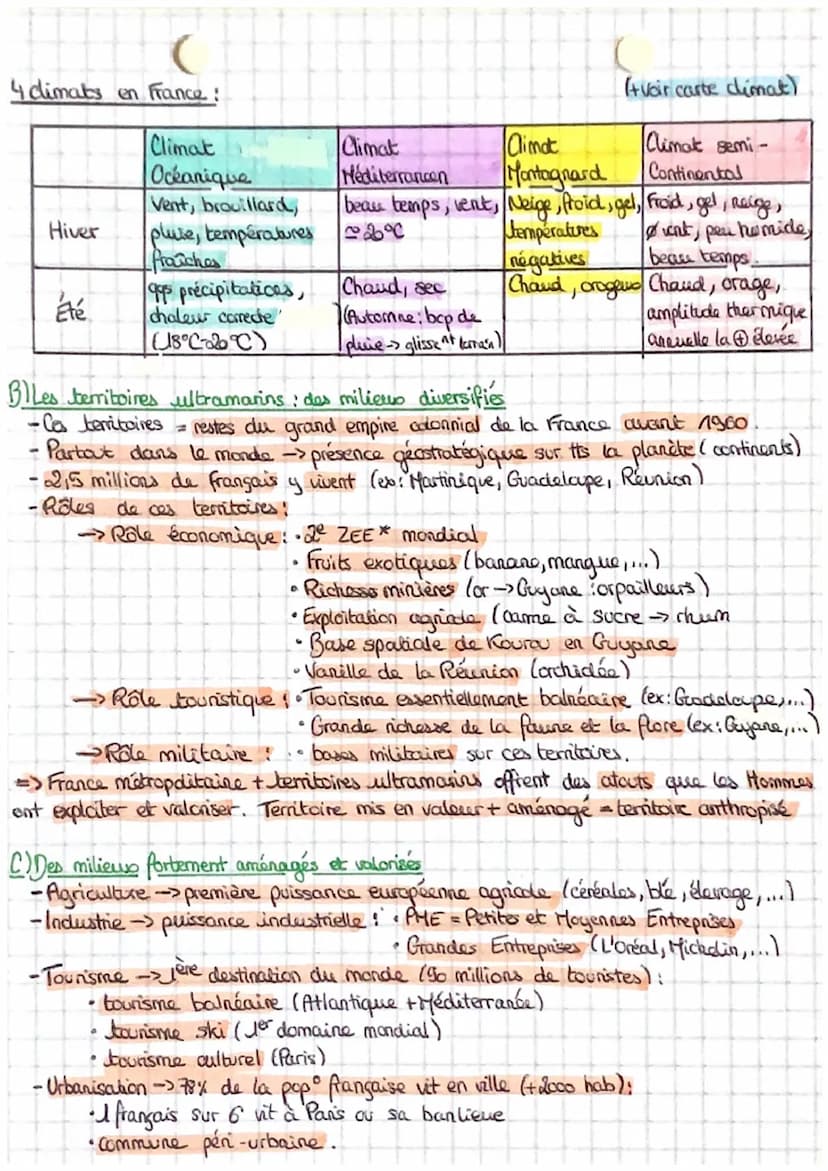 4 climats en France :
(+voir carte climat)
Climat Océanique
Climat Méditerranéen
Climat Montagnard
Climat semi-Continental
Hiver
Vent, brouillard,
pluie, températures
fraîches
beau temps, vent,
≃ 20°C
Neige, froid, gel,
températures
négatives
Froid, gel, neige,
ø vent, peu humide,
beau temps.
Été
qqs précipitations,
chaleur correcte
(18°C-20°C)
Chaud, sec
(Automne : bcp de
pluie -> glisse^nt terrain)
Chaud, orageux
Chaud, orage,
amplitude thermique
annuelle la ⊕ élevée
B) Les territoires ultramarins : des milieux diversifiés
- Ces territoires = restes du grand empire colonnial de la France avant 1960.
- Partout dans le monde -> présence géostratégique sur tts la planète (continents)
- 2,5 millions de français y vivent (ex: Martinique, Guadeloupe, Réunion)
- Rôles de ces territoires :
-> Rôle économique : • 2e ZEE* mondial
• Fruits exotiques (banane, mangue, ...)
• Richesse minières (or -> Guyane : orpailleurs)
• Exploitation agricole (canne à sucre -> rhum
• Base spatiale de Kourou en Guyane
• Vanille de la Réunion (orchidée)
-> Rôle touristique : • Tourisme essentiellement balnéaire (ex: Guadeloupe, ...)
• Grande richesse de la faune et la flore (ex: Guyane, ...)
-> Rôle militaire : • bases militaires sur ces territoires.
=> France métropolitaine + territoires ultramarins offrent des atouts que les Hommes
ont exploiter et valoriser. Territoire mis en valeur + aménagé = territoire anthropisé
C) Des milieux fortement aménagés et valorisés
- Agriculture -> première puissance européenne agricole (céréales, blé, élevage, ...)
- Industrie -> puissance industrielle : • PME = Petites et Moyennes Entreprises
• Grandes Entreprises (L'Oréal, Michelin, ...)
- Tourisme -> 1ère destination du monde (90 millions de touristes) :
• tourisme balnéaire (Atlantique + Méditerranée)
• tourisme ski (1er domaine mondial)
• tourisme culturel (Paris)
- Urbanisation -> 78% de la pop° française vit en ville (+2000 hab) :
• 1 français sur 6 vit à Paris ou sa banlieue
• commune péri-urbaine.